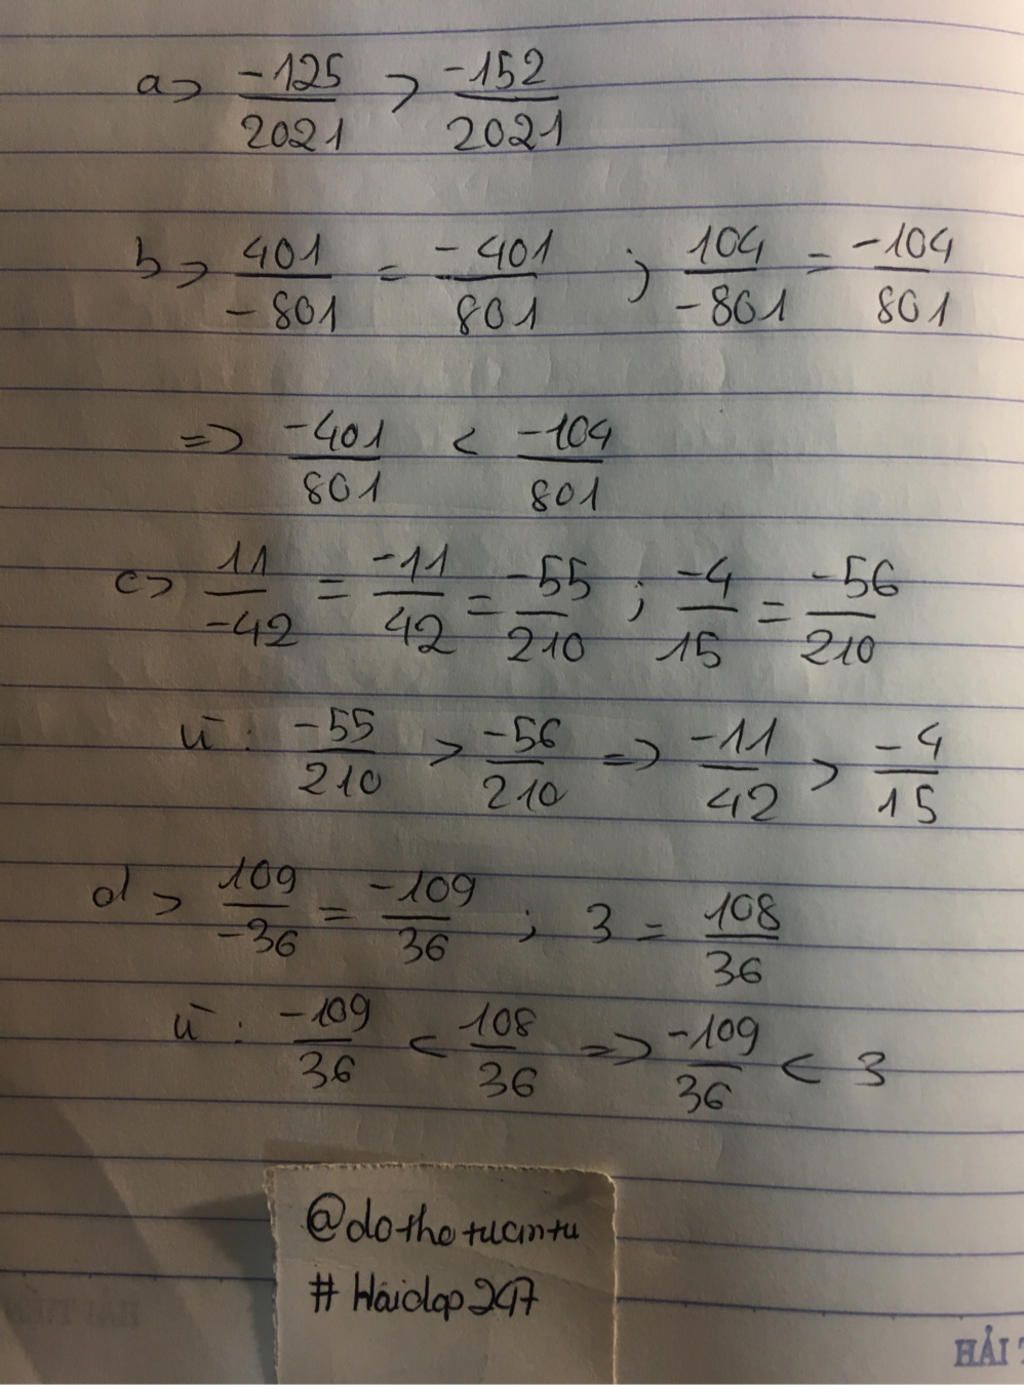 a> -125/2021 > -152/2021
b> 401/-801 = -401/801 ; 104/-801 = -104/801
=> -401/801 < -104/801
c> 11/-42 = -11/42 = -55/210 ; -4/15 = -56/210
: -55/210 > -56/210 => -11/42 > -4/15
d> 109/-36 = -109/36 ; 3 = 108/36
: -109/36 < 108/36 => -109/36 < 3
@dothetuantu
# Hoidap247
HẢI